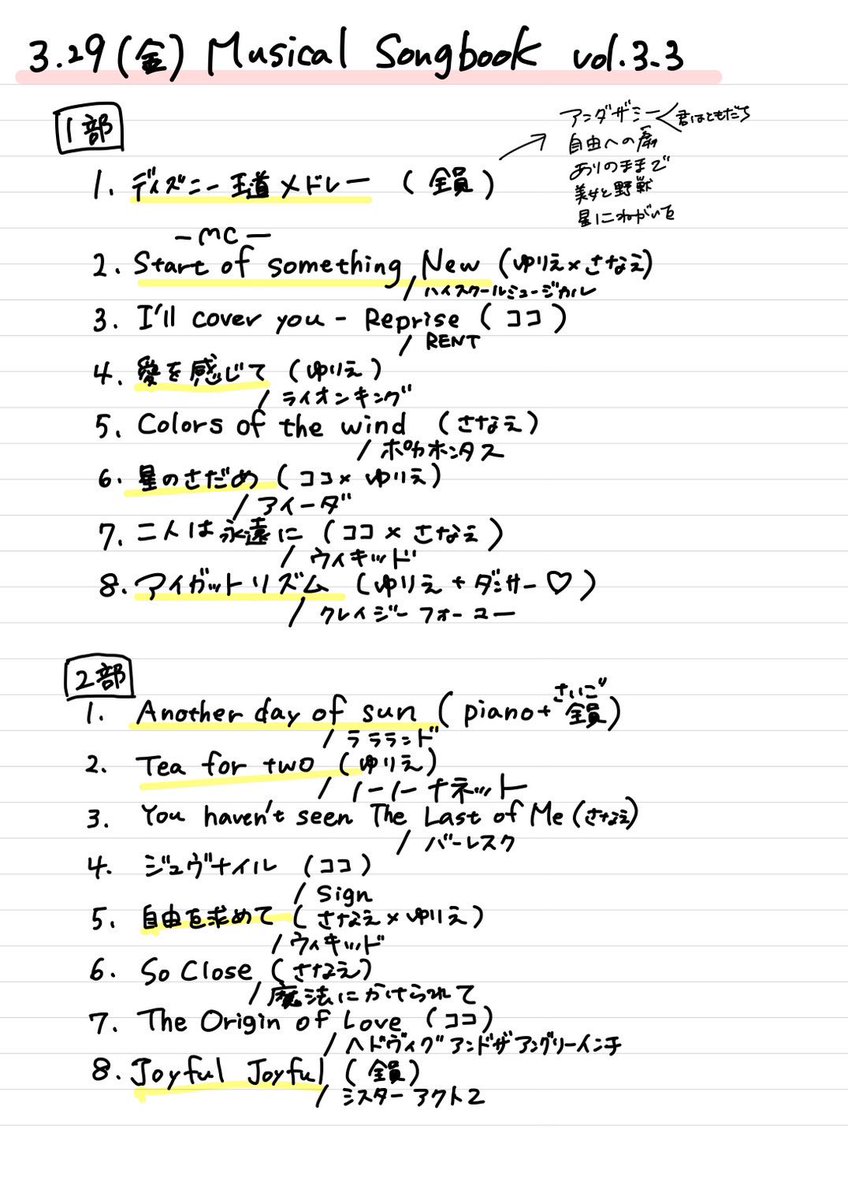 3.29(金) Musical Songbook vol.3.3
1部
1. ディズニー王道メドレー (全員)
アンダザシー
君はともだち
自由への扉
ありのままで
美女と野獣
星にねがいを
-MC-
2. Start of something New (ゆりえ×さなえ)
/ハイスクールミュージカル
3. I'll cover you - Reprise (ココ)
/ RENT
4. 愛を感じて (ゆりえ)
/ライオンキング
5. Colors of the wind (さなえ)
/ポカホンタス
6. 星のさだめ (ココ× ゆりえ)
/アイーダ
7. 二人は永遠に (ココ×さなえ)
/ ウィキッド
8. アイガットリズム (ゆりえ+ダンサー♡)
/ クレイジーフォーユー
2部
さいご
1. Another day of sun (piano+全員)
/ララランド
2. Tea for two (ゆりえ)
/ ノーノーナネット
3. You haven't seen The Last of Me (さなえ)
/ バーレスク
4. ジュヴナイル (ココ)
/ Sign
5. 自由を求めて (さなえ×ゆりえ)
/ウィキッド
6. So Close (さなえ)
/魔法にかけられて
7. The Origin of Love (ココ)
/ヘドヴィグアンドザアングリーインチ
8. Joyful Joyful (全員)
/ シスターアクト2